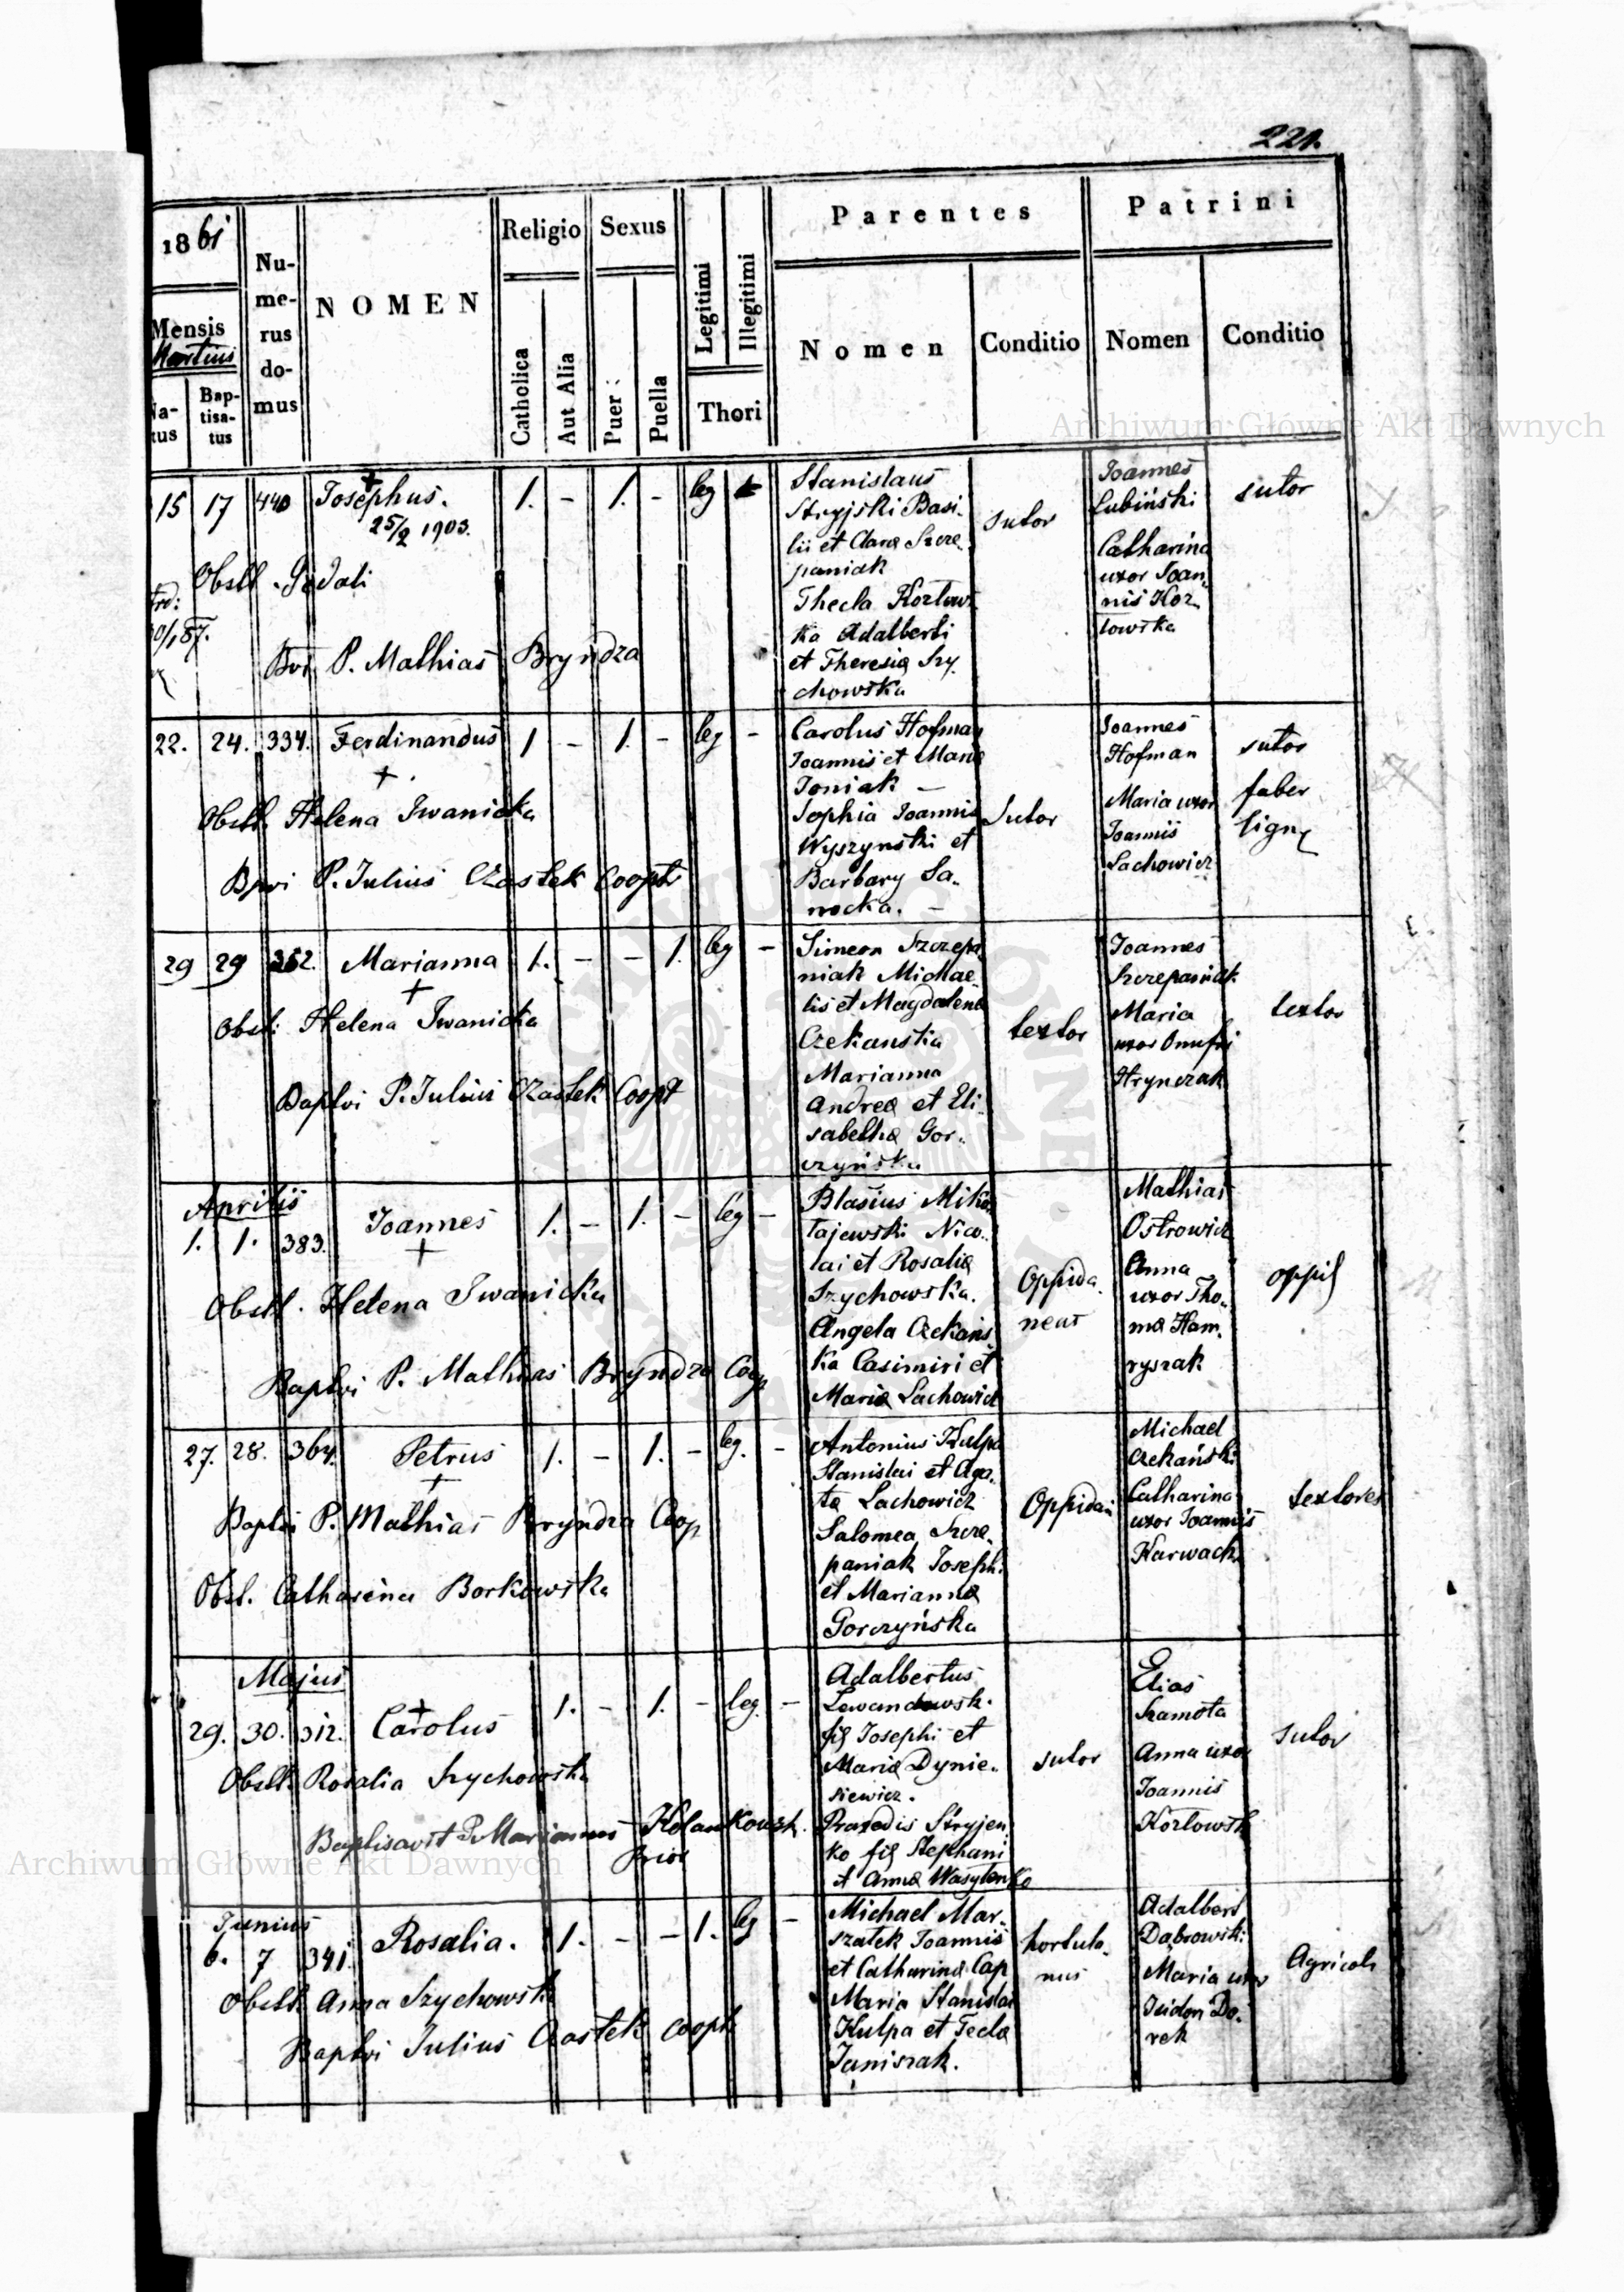 221.
1861
Mensis
Martius
Natus
Baptisatus
Numerus domus
NOMEN
Religio
Catholica
Aut Alia
Sexus
Puer
Puella
Legitimi
Illegitimi
Thori
Parentes
Nomen
Conditio
Patrini
Nomen
Conditio
Archiwum Główne Akt Dawnych
15 17 440 Josephus. 1. - 1. - leg
25/2 1903.
Obstt.
P. Mathias Bryndza
Stanislaus
Stryjski Basi-
lii et Clara Szcze-
paniak
Thecla Kozłow-
ka Adalberti
et Theresia Szy-
chowska
sutor
Joannes
Łubiński
Catharina
uxor Joan-
nis Koz-
łowska
sutor
22. 24. 334. Ferdinandus 1 - 1. - leg -
Obstt. Helena Iwanicka
P. Julius Czastek Coopt
Carolus Hofman
Joannis et Maria
Toniak -
Sophia Joannis
Wyszynski et
Barbary Sa-
nocka. -
Sutor
Joannes
Hofman
Maria uxor
Joannis
Lachowicz
sutor
faber
lign
29 29 352. Marianna 1. - - 1. leg -
Obst: Helena Iwanicka
Baptvi P. Julius Czastek Coopt
Simeon Szczepa
niak Michae-
lis et Magdalena
Czekanska
Marianna
Andrea et Eli-
sabetha Gor-
czyńska
textor
Joannes
Szczepaniak
Maria
uxor Onufri
Hrynczak
textor
Aprilis
1. 1. 383. Joannes 1. - 1. - leg -
Obstt. Helena Iwanicka
Baptvi P. Mathias Bryndza Coop
Blasius Miko
łajewski Nico-
lai et Rosalia
Szychowska.
Angela Czekańs
ka Casimiri et
Maria Lachowicz
Oppida-
neus
Mathias
Ostrowicz
Anna
uxor Tho-
ma Ham-
ryszak
27. 28. 364. Petrus 1. - 1. - leg. -
Baptvi P. Mathias Bryndza Coop
Obst. Catharina Borkowska
Antonius Kulpa
Stanislai et Aga-
ta Lachowicz
Salomea Szcze-
paniak Joseph.
et Marianna
Gorczyńska
Michael
Czekański
Catharina
uxor Joannis
Harwack
textores
Majus
29. 30. 312. Carolus 1. - 1. - leg. -
Obstt. Rosalia Szychowska
Baptisavit P. Marianus
Prior
Adalbertus
Lewandowsk.
fil Josephi et
Maria Dynie-
siewicz.
Praxedis Stryjen
ko fil Stephani
et Anna Wasylenko
sutor
Elias
Szamota
Anna uxor
Joannis
Kozłowsk
sutor
Archiwum Główne Akt Dawnych
Junius
6. 7 341. Rosalia. 1. - - 1. leg -
Obstt. Anna Szychowsk
Baptvi Julius Czastek coopt
Michael Mar-
szałek Joannis
et Catharina Cap
Maria Stanislai
Kulpa et Tecla
Janiszak.
hortula-
nus
Adalbert
Dąbrowski
Maria uxor
Isidori Do-
rek
Agricola